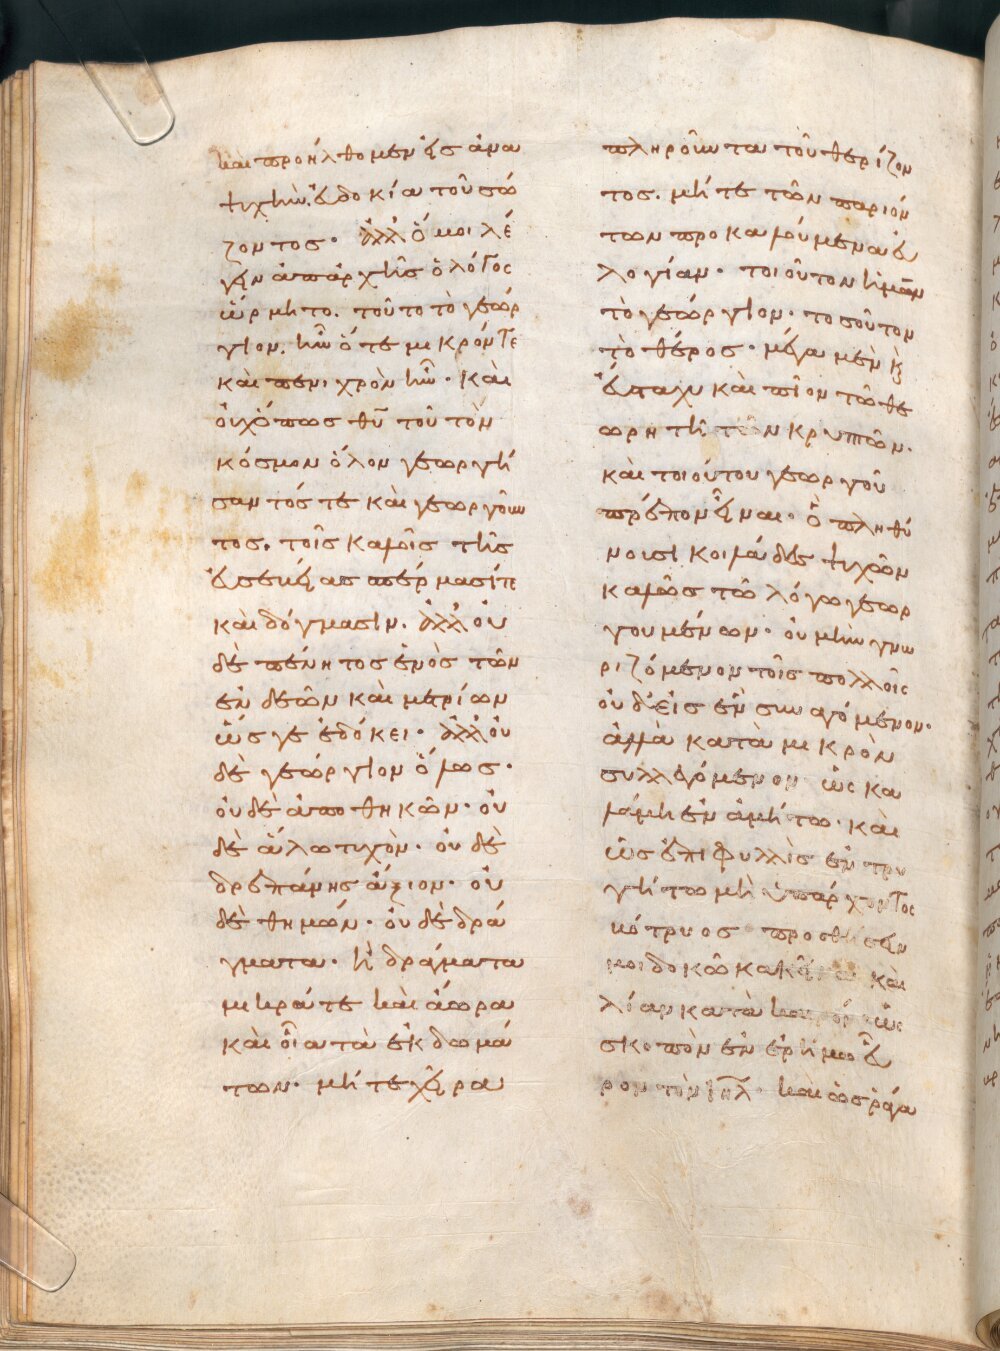 καὶ προήλθομεν εἰς ἀνα
ψυχὴν, εὐδοκία τοῦ σώ
ζοντος· ἀλλ' ὅ μοι λέ
γειν ἀπ' ἀρχῆς ὁ λόγος
ὥρμητο. τοῦτο τὸ γεώρ
γιον, ἦν ὅτε μικρόν τε
καὶ πενιχρὸν ἦν· καὶ
οὐχ ὅπως θυ τοῦ τὸν
κόσμον ὅλον γεωργή
σαντός τε καὶ γεωργοῦν
τος. τοῖς καλοῖς τῆς
εὐσεβείας σπέρμασί τε
καὶ δόγμασιν. ἀλλ' οὐ
δὲ πένητος ἑνὸς τῶν
ἐνδεῶν καὶ μετρίων
ὥς γε ἐδόκει· ἀλλ' οὐ
δὲ γεώργιον ὅλως·
οὐδὲ ἀποθηκῶν· οὐ
δὲ ἅλω τυχὸν· οὐδὲ
δρεπάνης ἄξιον· οὐ
δὲ θημών· οὐδὲ δρά
γματα· ἢ δράγματα
μικρά τε καὶ ἄωρα
καὶ οἷα τὰ ἐκ δωμά
των· μήτε χεῖρα
πληροῦντα τοῦ θερίζον
τος. μήτε τῶν παριόν
των προκαλούμενα εὐ
λογίαν· τοιοῦτον ἡμῶν
τὸ γεώργιον· τοσοῦτον
τὸ θέρος· μέγα μὲν κ
εὔσταχυ καὶ πῖον τῶ θε
ωρητῆ τῶν κρυπτῶν·
καὶ τοιούτου γεωργοῦ
πρέπον εἶναι· ὃ πληθύ
νουσι κοιλάδες ψυχῶν
καλῶς τῶ λόγω γεωρ
γουμένων· οὐ μὴν γνω
ριζόμενον τοῖς πολλοῖς
οὐδ' εἰς ἓν συναγόμενον·
ἀλλὰ κατὰ μικρὸν
συλλεγόμενον ὡς κα
λάμη ἐν ἀμήτω· καὶ
ὡς ἐπιφυλλὶς ἐν τρυ
γήτω μὴ ὑπάρχοντος
βότρυος προσθήσειν
μοι δοκῶ κακεῖνο καὶ
λίαν κατὰ καιρόν· ὡς
σκοπὸν ἐν ἐρήμω εὗ
ρον τὸν ιηλ· καὶ ὡς ῥάγα